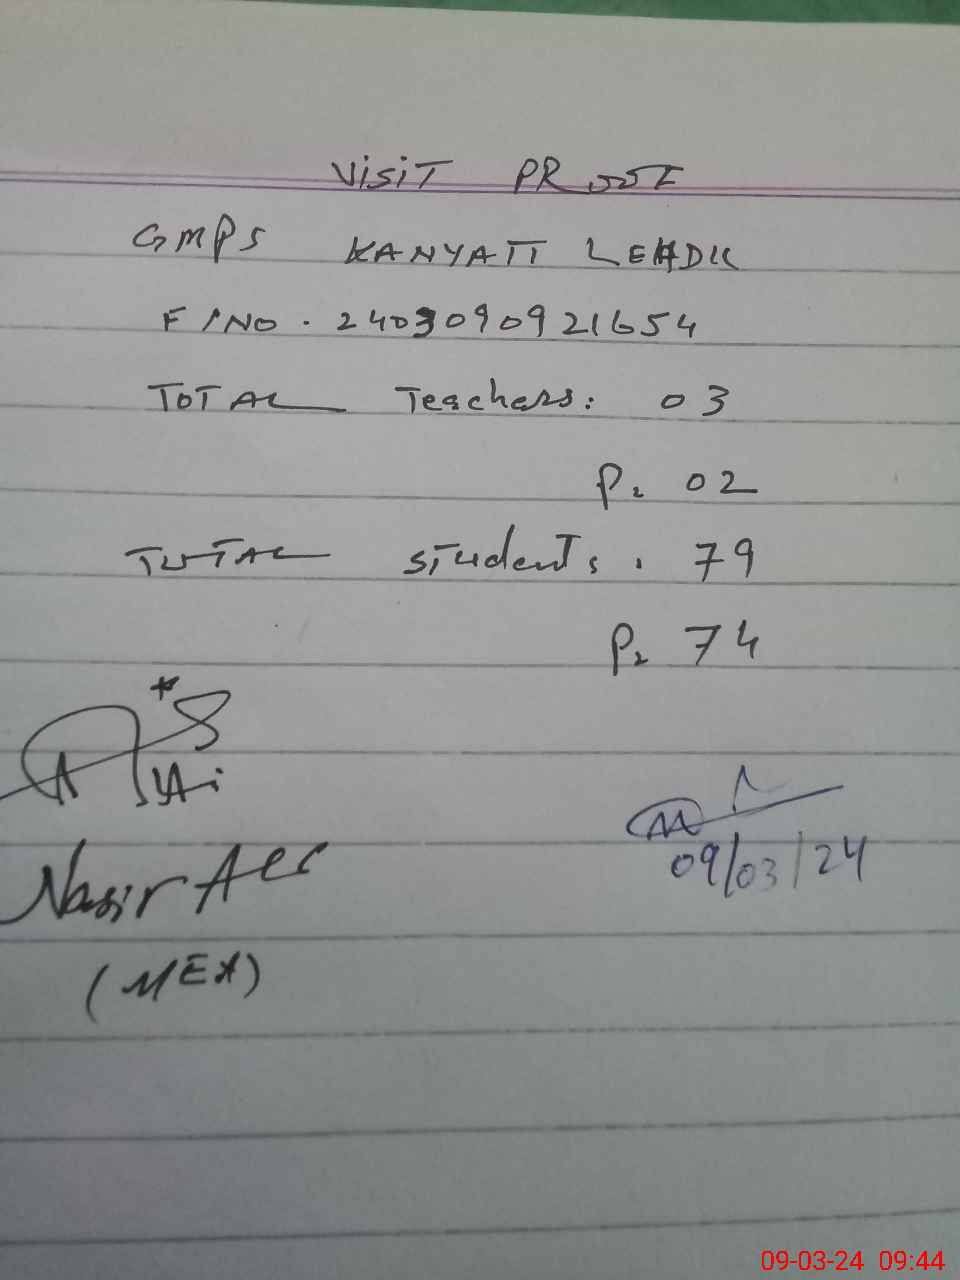 VISIT PROOF
GMPS KANYATI
F/NO. 2403090921654
TOTAL Teachers: 03
P. 02
TOTAL students. 79
P. 74
Nasir Ali
(MEA)
09/03/24
09-03-24 09:44